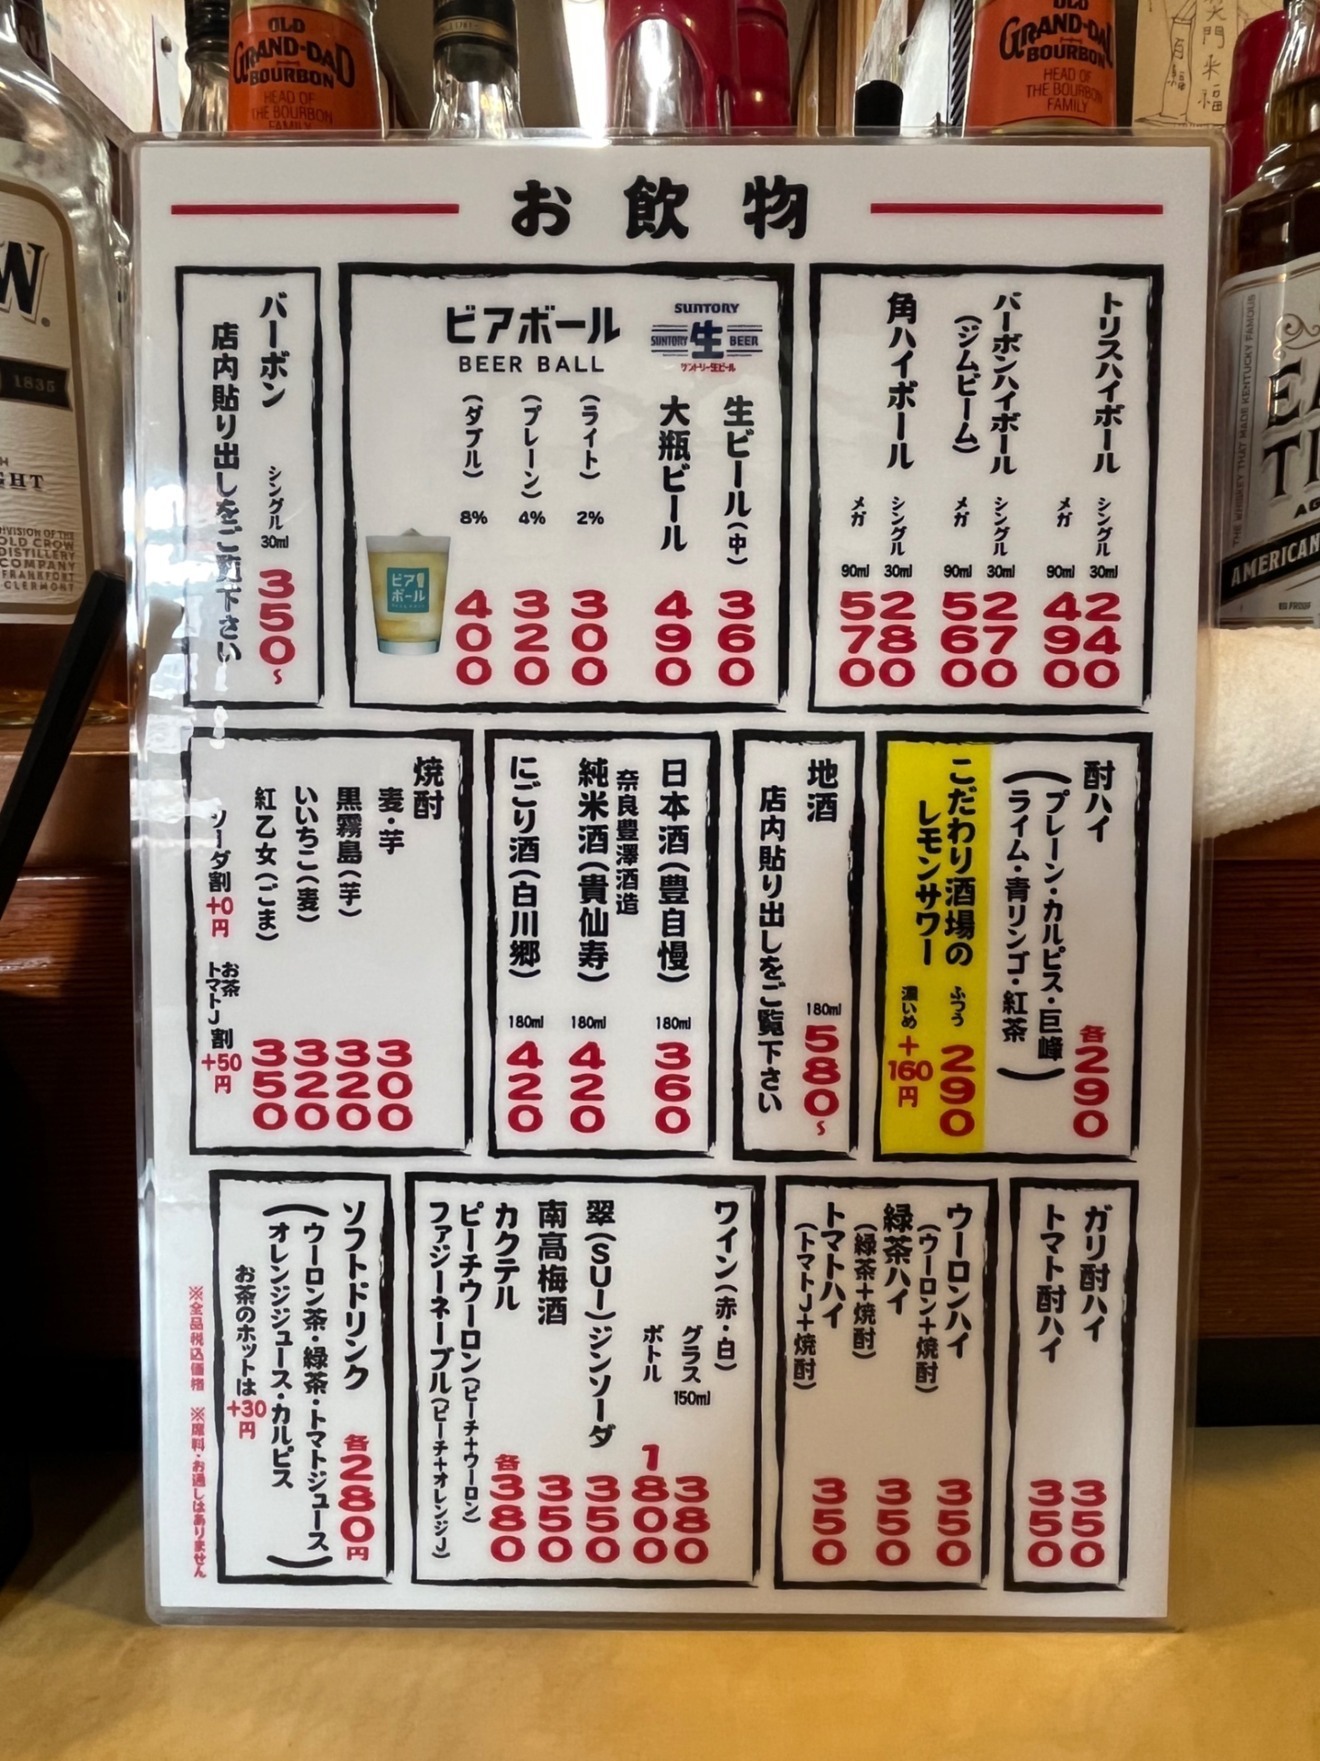 OLD
GRAND-DAD
BOURBON
HEAD OF
THE BOURBON
FAMILY
OLD
GRAND-DAD
BOURBON
HEAD OF
THE BOURBON
FAMILY
笑門来福
お飲物
トリスハイボール
シングル 30ml 240
メガ 90ml 490
バーボンハイボール
(ジムビーム)
シングル 30ml 270
メガ 90ml 560
角ハイボール
シングル 30ml 280
メガ 90ml 570
SUNTORY
SUNTORY 生 BEER
サントリー生ビール
生ビール(中) 360
大瓶ビール 490
ビアボール
BEER BALL
(ライト) 2% 300
(プレーン) 4% 320
(ダブル) 8% 400
ビアボール
バーボン シングル 30ml 350~
店内貼り出しをご覧下さい
酎ハイ 各290
(プレーン・カルピス・巨峰
ライム・青リンゴ・紅茶)
こだわり酒場の
レモンサワー
ふつう 290
濃いめ +160円
地酒 180ml 580~
店内貼り出しをご覧下さい
日本酒(豊自慢) 180ml 360
奈良豊澤酒造
純米酒(貴仙寿) 180ml 420
にごり酒(白川郷) 180ml 420
焼酎
麦・芋 300
黒霧島(芋) 320
いいちこ(麦) 320
紅乙女(ごま) 350
ソーダ割+0円 お茶 トマトJ 割+50円
ガリ酎ハイ 350
トマト酎ハイ 350
ウーロンハイ 350
(ウーロン+焼酎)
緑茶ハイ 350
(緑茶+焼酎)
トマトハイ 350
(トマトJ+焼酎)
ワイン(赤・白)
グラス 150ml 380
ボトル 1800
翠(SUI)ジンソーダ 350
南高梅酒 350
カクテル 各380
ピーチウーロン(ピーチ+ウーロン)
ファジーネーブル(ピーチ+オレンジJ)
ソフトドリンク 各280円
(ウーロン茶・緑茶・トマトジュース
オレンジジュース・カルピス)
お茶のホットは+30円
※全品税込価格 ※席料・お通しはありません
W
1835
GHT
DIVISION OF THE
OLD CROW
DISTILLERY
COMPANY
FRANKFORT
CLERMONT
THE WHISKEY THAT MADE KENTUCKY FAMOUS
AMERICAN